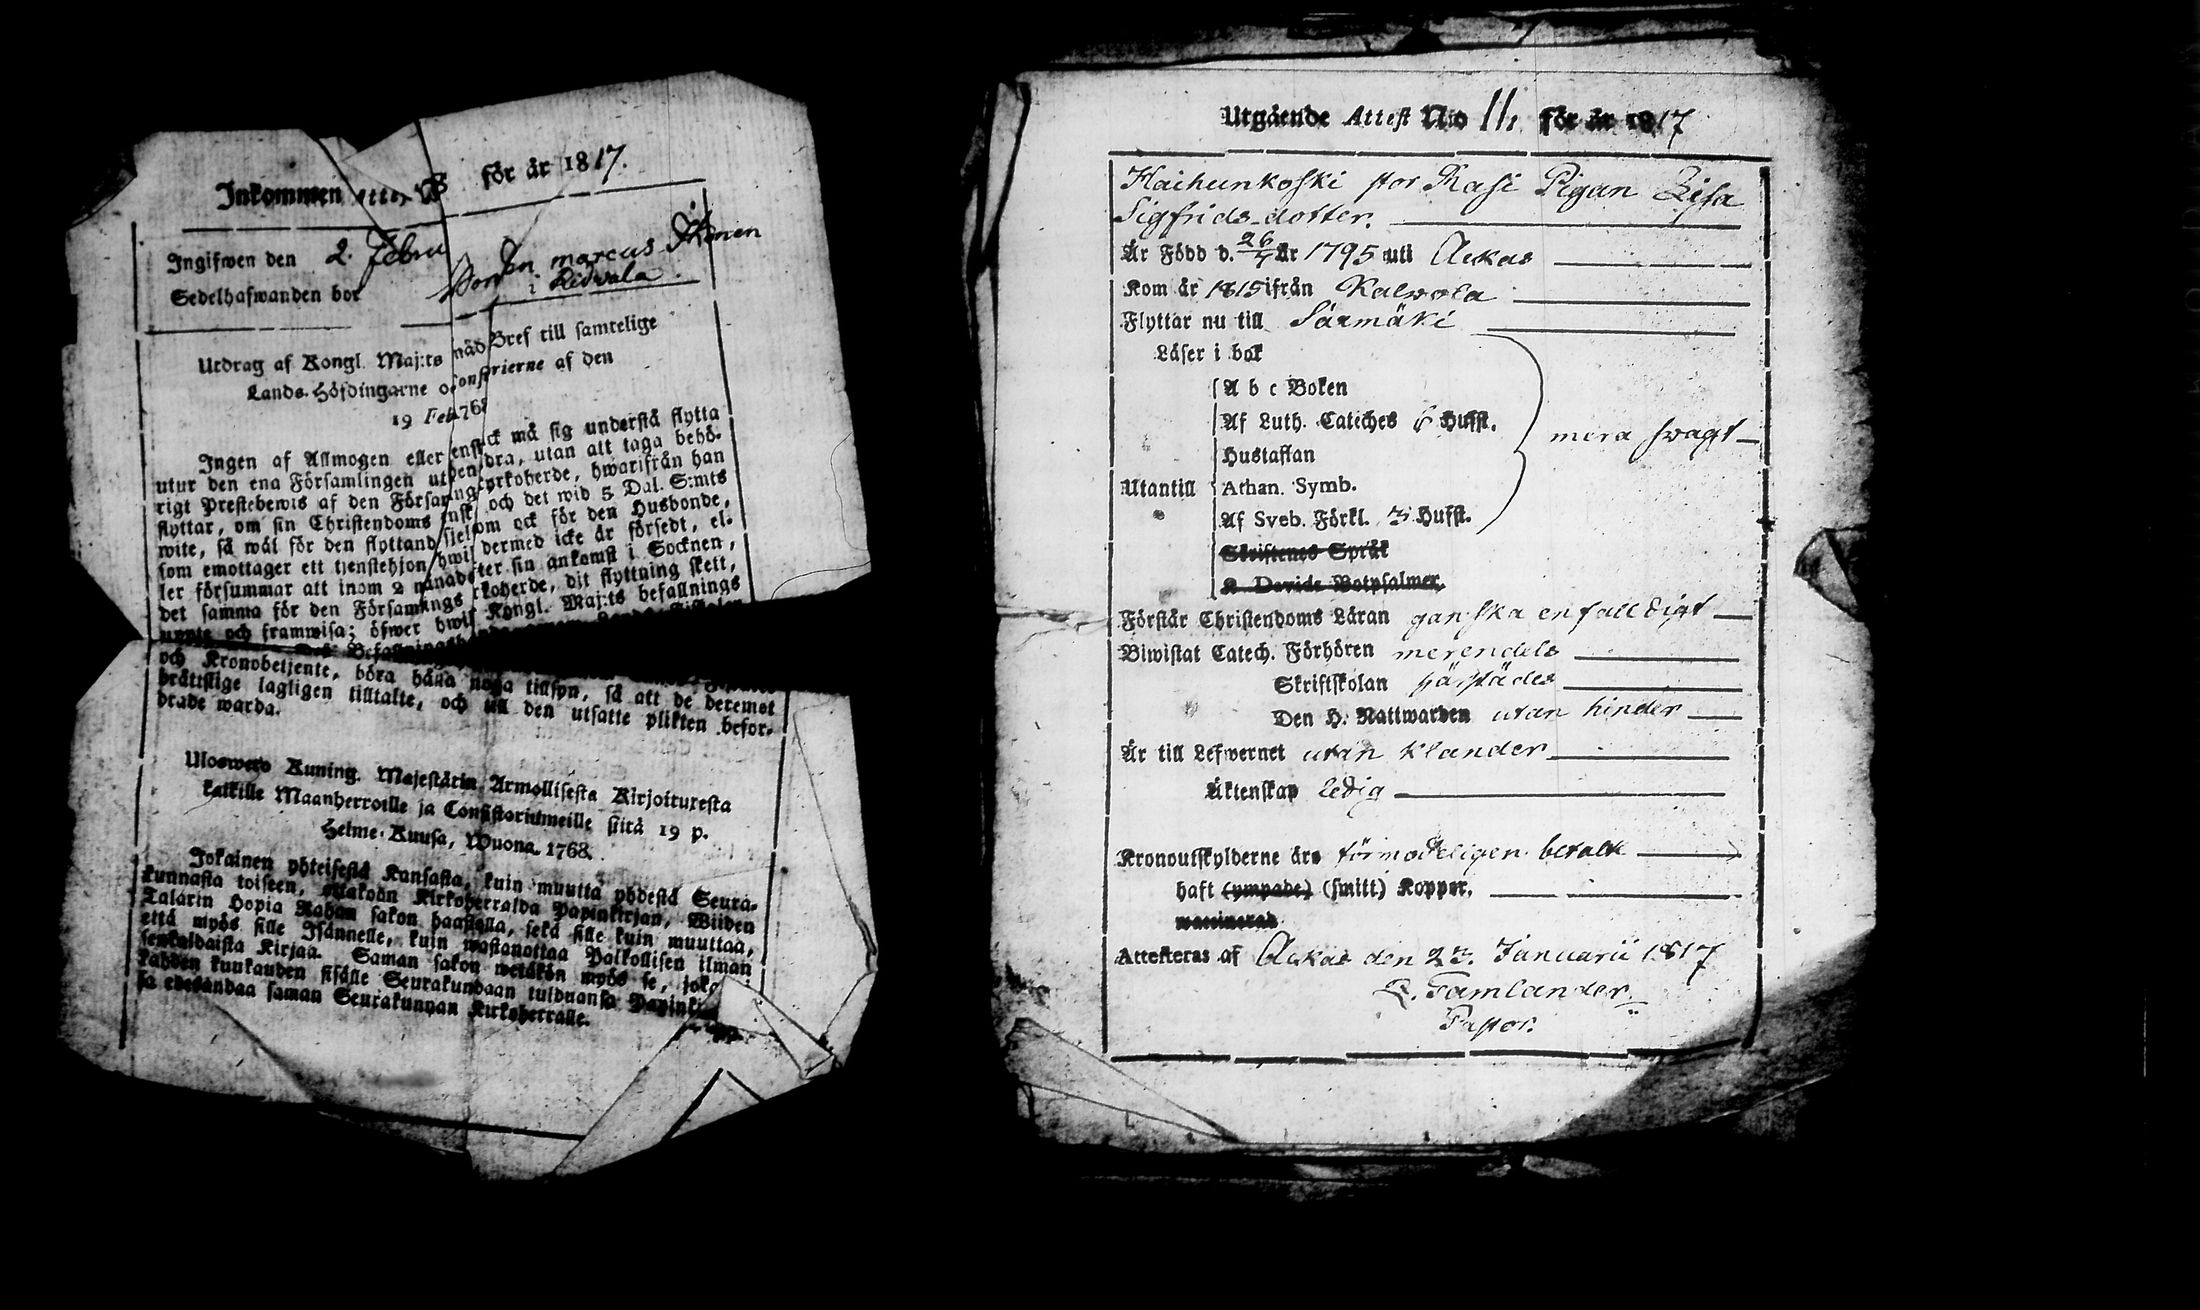 Inkommen för år 1817.
Ingifwen den 2. Febru
Sedelhafwanden bor marcus
i Ridvala.
Utdrag af Kongl. Maj:ts nåd Bref till samtelige
Lands-Höfdingarne o onsistorierne af den
19 Feb. 1768
Ingen af Allmogen eller ensk ck må sig understå flytta
utur den ena Församlingen ut en dra, utan att taga behö-
rigt Prestebewis af den Församlings yrkoherde, hwarifrån han
flyttar, om sin Christendoms nsk och det wid 5 Dal. S:mts
wite, så wäl för den flyttand siel om ock för den Husbonde,
som emottager ett tjenstehjon hwil dermed icke är försedt, el-
ler försummar att inom 2 månad ter sin ankomst i Socknen,
det samma för den Församlings rkoherde, dit flyttning skett,
uppte och framwisa; öfwer hwil Kongl. Maj:ts befallnings
och Kronobetjente, böra hålla noga tillsyn, så att de deremot
bråttslige lagligen tilltalte, och till den utsatte plikten befor-
drade warda.
Uloswero Kuning. Majestärin Armollisesta Kirjoituresta
kaikille Maanherroille ja Consistoriumeille siitä 19 p.
Helme-Kuusa, Wuona. 1768.
Jokainen yhteisestä Kansasta, kuin muutta yhdestä Seura-
kunnasta toiseen, ottakoon Kirkoherralda Papinkirjan, Wiiden
Talarin Hopia Rahan sakon haastolla, sekä sille kuin muuttaa,
että myös sille Isännelle, kuin wastanottaa Palkollisen ilman
senkaldaista Kirjaa. Saman sakon wetäkön myös se, joka
kahden kuukauden sisälle Seurakundaan tulduansa Papinki
ja edesandaa saman Seurakunnan Kirkoherralle.
Utgående Attest N:o 11. för år 1817
Haihunkoski stor Rasi Pigan Lisa
Sigfrids dotter.
Är Född d. 26/4 år 1795 uti Ackas
Kom år 1815 ifrån Kalvola
Flyttar nu till Säxmäki
Läser i bok
A b c Boken
Af Luth. Cateches 6 Hufst.
mera swagt
Hustaflan
Utantill Athan. Symb.
Af Sveb. Förkl. 3 Hufst.
Skriftenes Språk
K. Davids Botpsalmer.
Förstår Christendoms Läran ganska enfalldigt
Biwistat Catech. Förhören merendels
Skriftskolan härstädes
Den H. Nattwarden utan hinder
Är till Lefwernet utan klander
Äktenskap ledig
Kronoutskylderne äro förmodeligen betalte
haft (ympade) (smitt) Koppor.
waccinerad
Attesteras af Ackas den 23. Januarii 1817
Tamlander.
Pastor.